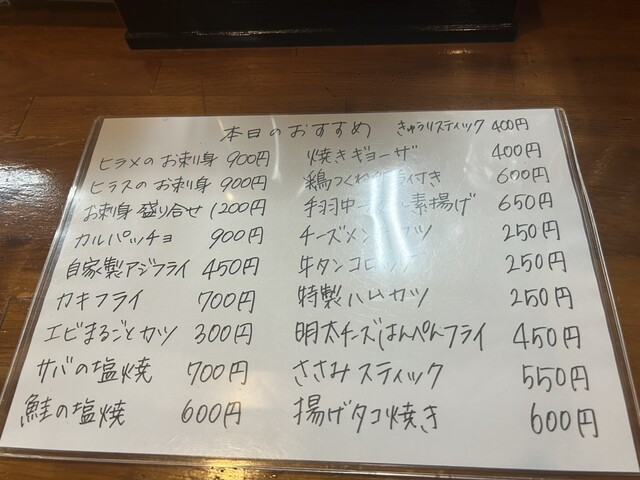 本日のおすすめ
ヒラメのお刺身 900円
ヒラスのお刺身 900円
お刺身盛り合せ 1200円
カルパッチョ 900円
自家製アジフライ 450円
カキフライ 700円
エビまるごとカツ 300円
サバの塩焼 700円
鮭の塩焼 600円
きゅうりスティック 400円
焼きギョーザ 400円
鶏つくね 付き 600円
手羽中 素揚げ 650円
チーズメンチカツ 250円
牛タンコロッケ 250円
特製ハムカツ 250円
明太チーズはんぺんフライ 450円
ささみスティック 550円
揚げタコ焼き 600円